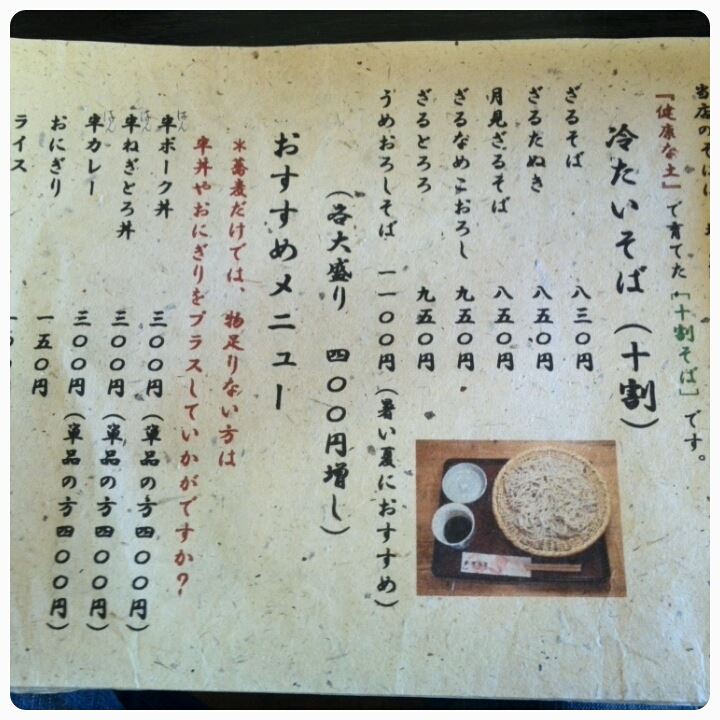 当店のそばは
『健康な土』で育てた「十割そば」です。
冷たいそば（十割）
ざるそば 八三〇円
ざるたぬき 八五〇円
月見ざるそば 八五〇円
ざるなめこおろし 九五〇円
ざるとろろ 九五〇円
うめおろしそば 一一〇〇円（暑い夏におすすめ）
（各大盛り 四〇〇円増し）
おすすめメニュー
＊蕎麦だけでは、物足りない方は
半丼やおにぎりをプラスしていかがですか？
半ポーク丼 三〇〇円（単品の方四〇〇円）
半ねぎとろ丼 三〇〇円（単品の方四〇〇円）
半カレー 三〇〇円（単品の方四〇〇円）
おにぎり 一五〇円
ライス